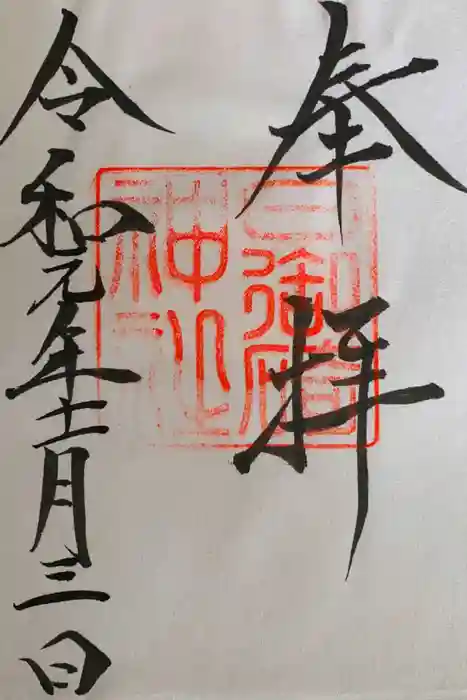 奉拝
御
神社
令和元年十一月三日